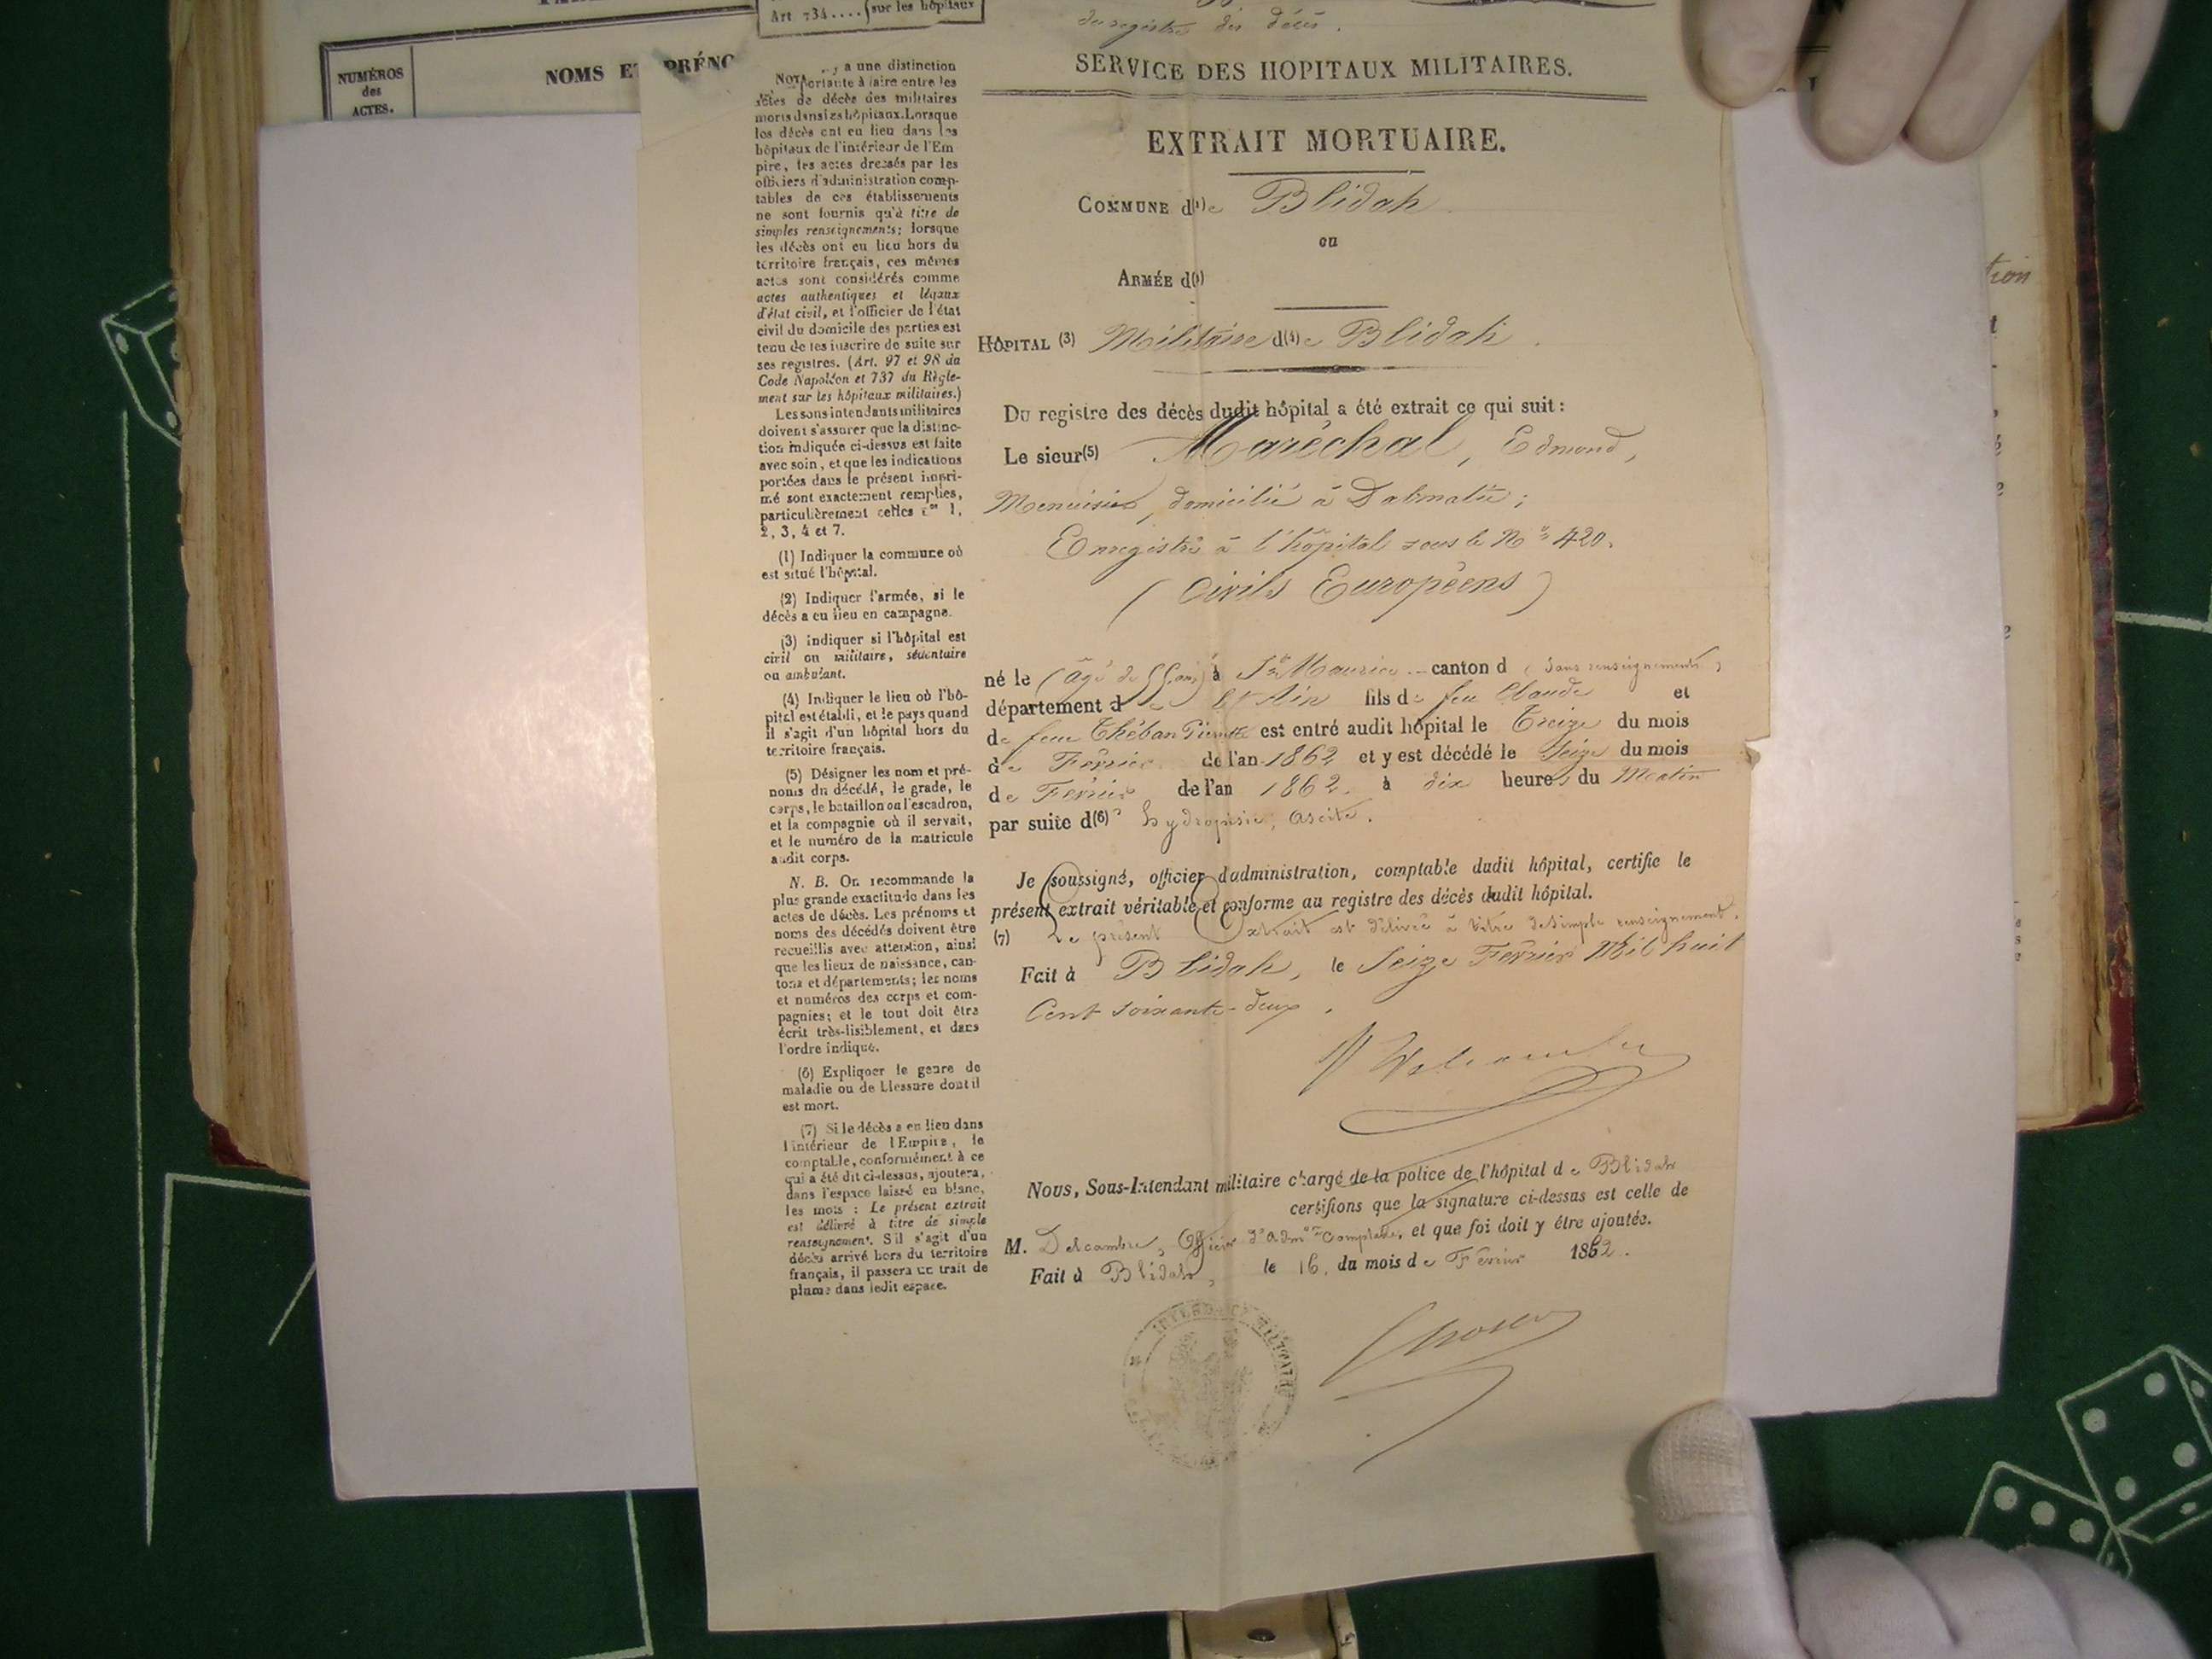 Art. 734.... sur les hôpitaux
du registre des décès.
NUMÉROS
des
ACTES.
NOMS ET PRÉNO
SERVICE DES HOPITAUX MILITAIRES.
EXTRAIT MORTUAIRE.
COMMUNE d(1)e Blidah
ou
ARMÉE d
HÔPITAL (3) Militaire d(4)e Blidah.
Du registre des décès dudit hôpital a été extrait ce qui suit :
Le sieur(5) Maréchal, Edmond,
Menuisier, domicilié à Dalmatie ;
Enregistré à l'hôpital sous le No 420.
(Civils Européens)
né le (âgé de à St Maurice canton d (Sans renseignements)
département de l'Ain fils de feu Claude et
de feue Théban Pierrette est entré audit hôpital le Treize du mois
de Février de l'an 1862 et y est décédé le Seize du mois
de Février de l'an 1862. à dix heures du Matin
par suite d(6) hydropisie, ascite.
Je soussigné, officier d'administration, comptable dudit hôpital, certifie le
présent extrait véritable et conforme au registre des décès dudit hôpital.
(7) Le présent Extrait est délivré à titre de simple renseignement.
Fait à Blidah, le Seize Février Mil huit
Cent soixante-deux.
Nous, Sous-Intendant militaire chargé de la police de l'hôpital de Blidah
certifions que la signature ci-dessus est celle de
M. Delcambre, Officier d'Admon Comptable, et que foi doit y être ajoutée.
Fait à Blidah, le 16, du mois de Février 1862.
INTENDANCE MILITAIRE
NOTA. y a une distinction
portante à faire entre les
actes de décès des militaires
morts dans les hôpitaux. Lorsque
les décès ont eu lieu dans les
hôpitaux de l'intérieur de l'Em
pire, les actes dressés par les
officiers d'administration comp-
tables de ces établissements
ne sont fournis qu'à titre de
simples renseignements ; lorsque
les décès ont eu lieu hors du
territoire français, ces mêmes
actes sont considérés comme
actes authentiques et légaux
d'état civil, et l'officier de l'état
civil du domicile des parties est
tenu de les inscrire de suite sur
ses registres. (Art. 97 et 98 du
Code Napoléon et 737 du Règle-
ment sur les hôpitaux militaires.)
Les sous intendants militaires
doivent s'assurer que la distinc-
tion indiquée ci-dessus est faite
avec soin, et que les indications
portées dans le présent impri-
mé sont exactement remplies,
particulièrement celles nos 1,
2, 3, 4 et 7.
(1) Indiquer la commune où
est situé l'hôpital.
(2) Indiquer l'armée, si le
décès a eu lieu en campagne.
(3) Indiquer si l'hôpital est
civil ou militaire, sédentaire
ou ambulant.
(4) Indiquer le lieu où l'hô-
pital est établi, et le pays quand
il s'agit d'un hôpital hors du
territoire français.
(5) Désigner les nom et pré-
noms du décédé, le grade, le
corps, le bataillon ou l'escadron,
et la compagnie où il servait,
et le numéro de la matricule
audit corps.
N. B. On recommande la
plus grande exactitude dans les
actes de décès. Les prénoms et
noms des décédés doivent être
recueillis avec attention, ainsi
que les lieux de naissance, can-
tons et départements ; les noms
et numéros des corps et com-
pagnies ; et le tout doit être
écrit très-lisiblement, et dans
l'ordre indiqué.
(6) Expliquer le genre de
maladie ou de blessure dont il
est mort.
(7) Si le décès a eu lieu dans
l'intérieur de l'Empire, le
comptable, conformément à ce
qui a été dit ci-dessus, ajoutera,
dans l'espace laissé en blanc,
les mots : Le présent extrait
est délivré à titre de simple
renseignement. S'il s'agit d'un
décès arrivé hors du territoire
français, il passera un trait de
plume dans ledit espace.
tion